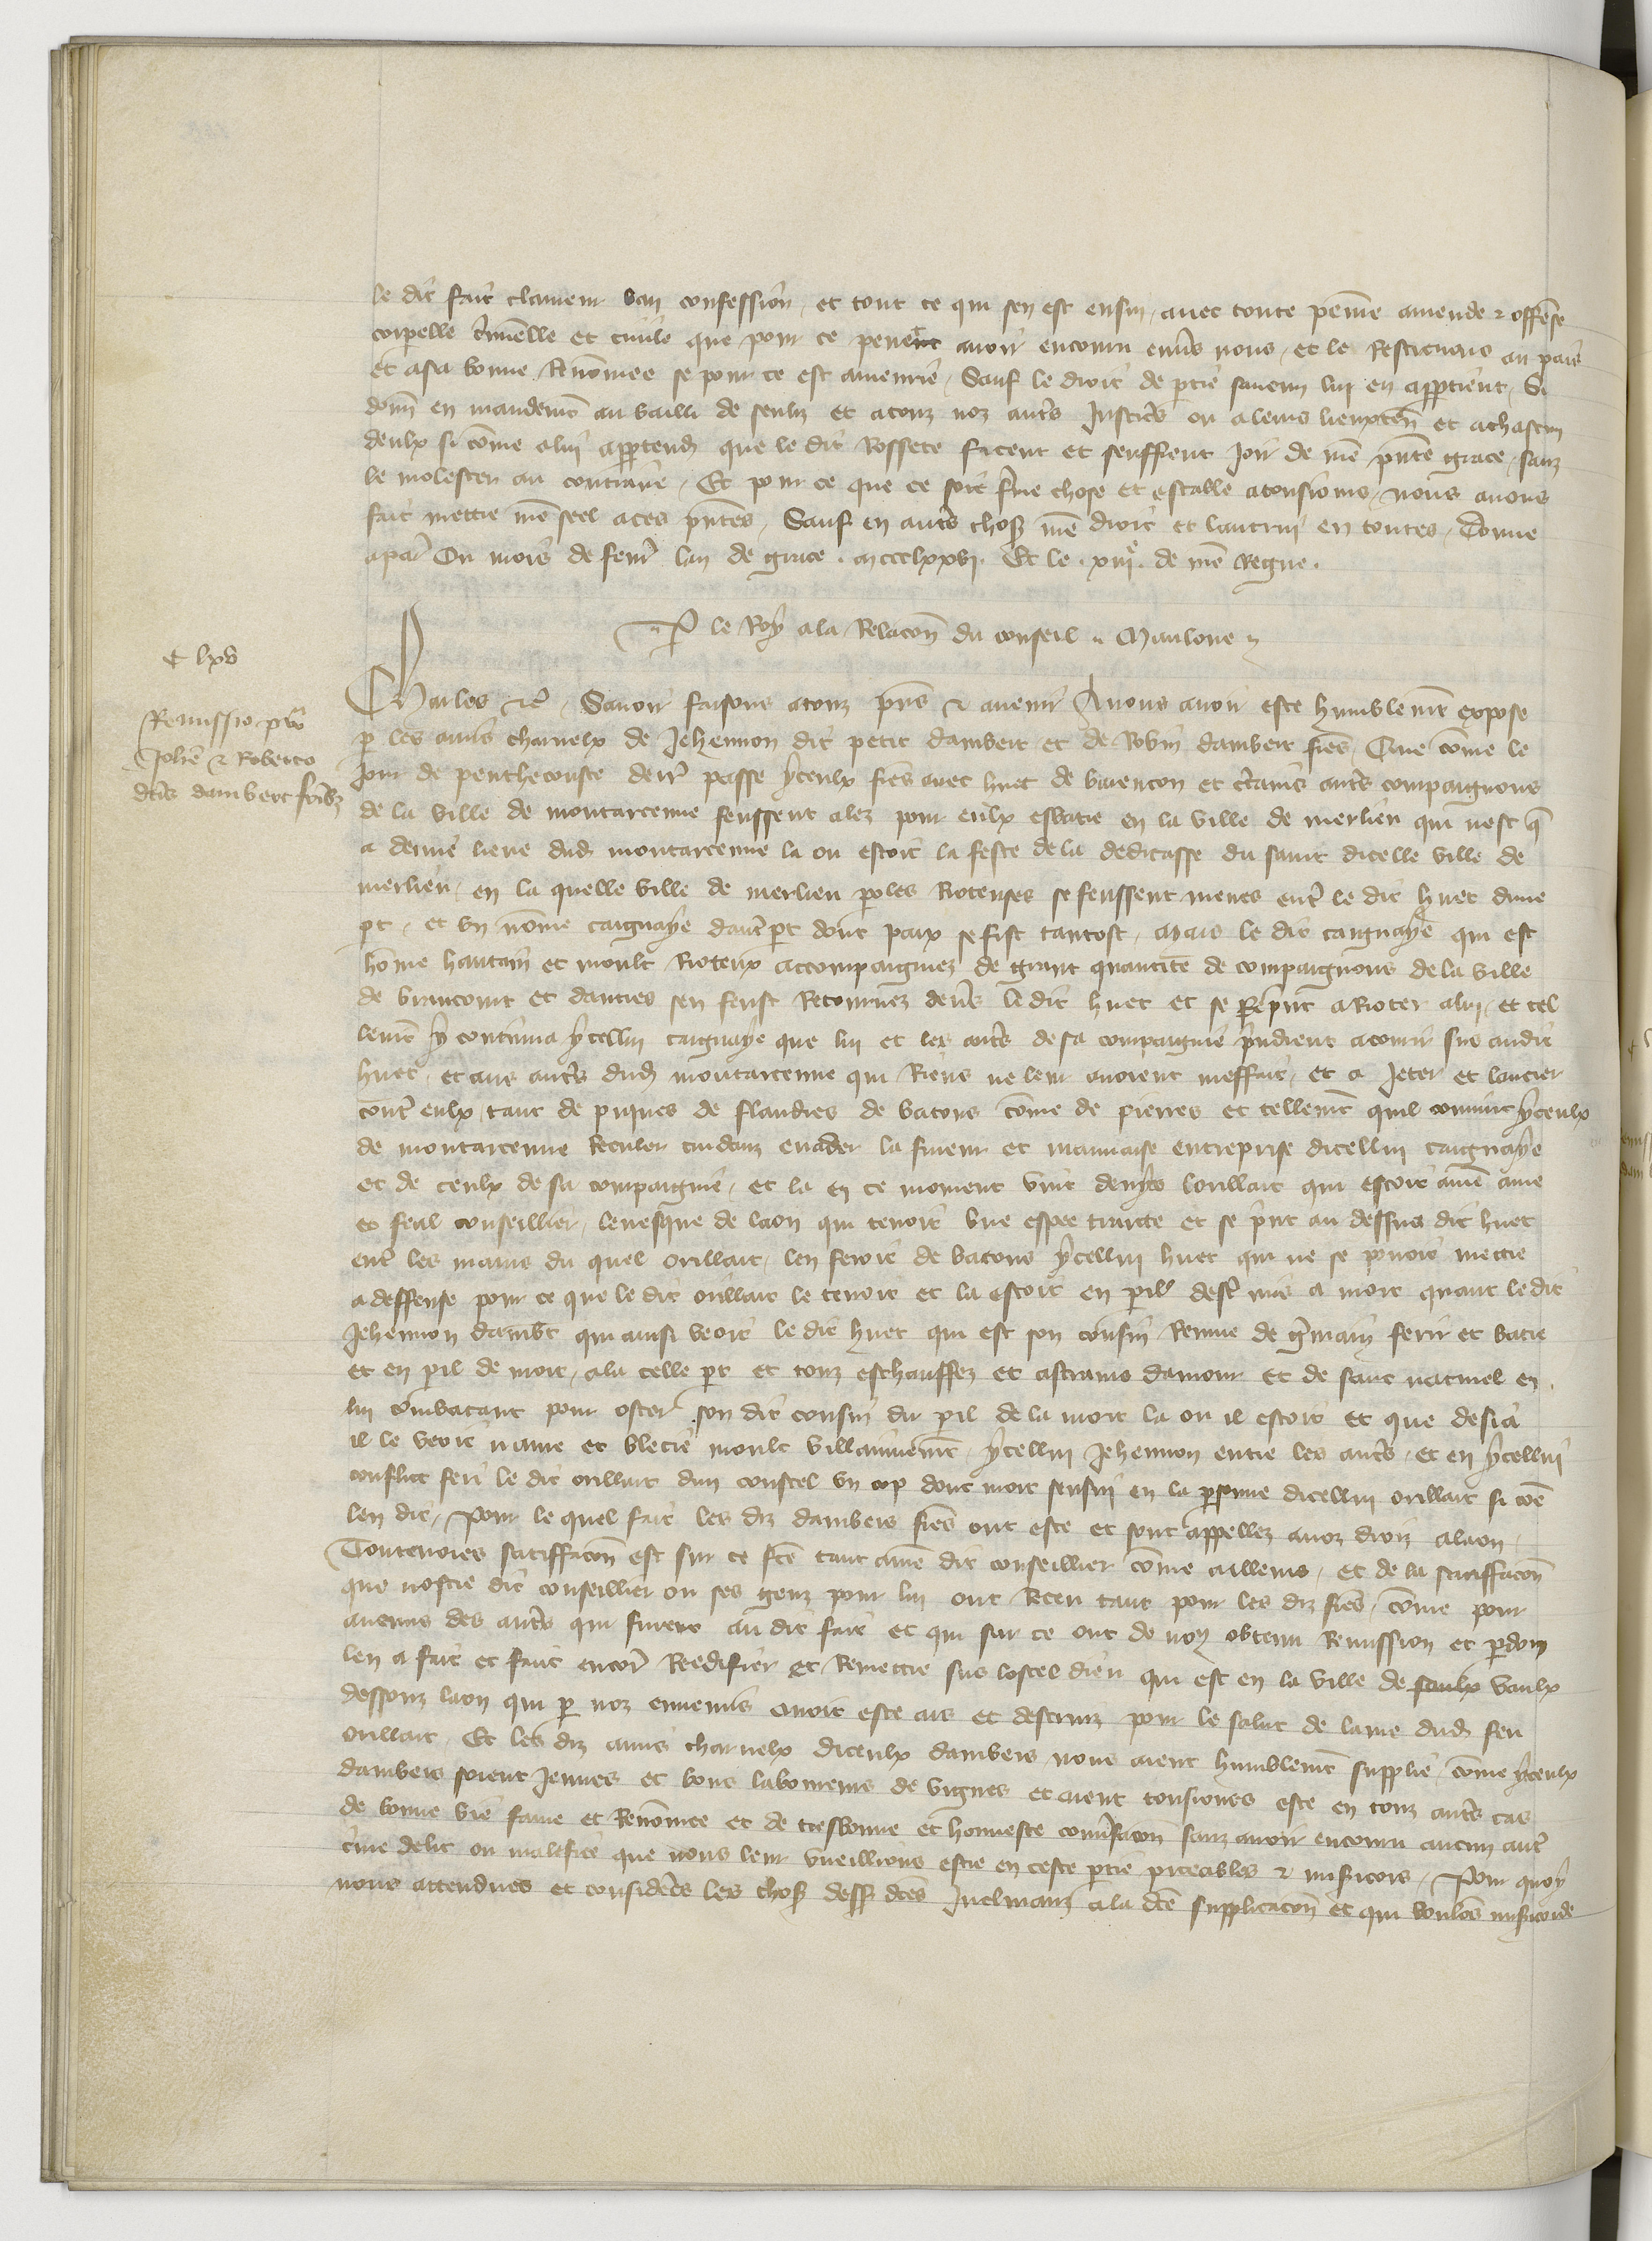 le dit fait clameur ban confession et tout ce qui sen est ensui avec toute peine amende & offense
corpelle criminelle et civile que pour ce pevent avoir encouru envers nous et le Restituons au pais
et a sa bonne Renommee se pour ce est amenrie Sauf le droit de partie saucun lui en appartient Si
donn en mandement au bailli de senliz et a touz noz autres Justiciers ou a leurs lieuxten et a chascun
deulx si comme a lui appartendra que le dit Rossete facent et seuffrent joir de nre pnte grace sanz
le molester au contraire Et pour ce que ce soit ferme chose et estable a tousiours nous avons
fait mettre nre seel a ces pntes Sauf en autres choses nre droit et lautrui en toutes Donne
a paris Ou mois de fevr lan de grace mccclxxvi Et le xiiie de nre Regne
P le Roy a la Relacon du conseil Maulone
C lxv
Charles etc Savoir faisons a touz pns & avenir A nous avoir este humblement expose
Remissio pro
Johe & Roberto
dcis dambert fribz
p les amis charnelx de Jehennon dit petit dambert et de Robin dambert freres Que comme le
jour de penthecouste derr passe yceulx freres avec huet de barenton et certains autres compaignons
de la ville de montarcenne feussent alez pour eulx esbatre en la ville de merlieu qui nest que
a demie lieue dud montarcenne la ou estoit la feste de la dedicasse du saint dicelle ville de
merlieu en la quelle ville de merlieu poles Rioteuses se feussent meues entre le dit huet dune
pt et un nomme caignaye dautre pt dont paix se fist tantost Mais le dit caignaye qui est
homme hautain et moult Rioteux accompaigniez de grant quantite de compaignons de la ville
de brancourt et dautres sen feust Retournez devers le dit huet et se Reprint a Rioter a lui et tel
lement y continua ycellui caignaye que lui et les autres de sa compaignie prindrent a courir sus audit
huet et aus autres dud montarcenne qui Riens ne leur avoient meffait et a jeter et lancier
contre eulx tant de piques de flandres de batons comme de pierres et tellement quil convint yceulx
de montarcenne Reculer cuidanz evader la fureur et mauvaise entreprise dicellui caignaye
et de ceulx de sa compaignie et la en ce moment vint denys lorillart qui estoit a nre ame
et feal conseillier levesque de laon qui tenoit une espee traicte et se print au dessus dit huet
entre les mains du quel orillart len feroit de batons ycellui huet qui ne se povoit mettre
a deffense pour ce que le dit orillart le tenoit et la estoit en peril destre mis a mort quant le dit
Jehennon dambt qui ainsi veoit le dit huet qui est son cousin Remue de germain ferir et batre
et en peril de mort ala celle pt et touz eschauffez et astrains damour et de sanc naturel en
lui combatant pour oster son dit cousin du peril de la mort la ou il estoit et que desia
il le veoit navre et blecie moult villainnement ycellui Jehennon entre les autres et en ycellui
conflict feri le dit orillart dun coustel un cop dont mort sensui en la personne dicellui orillart si come
len dit Pour le quel fait les diz dambers freres ont este et sont appellez a noz droiz a laon
Toutevoies satiffacon est sur ce fce tant a nre dit conseillier comme ailleurs et de la satiffacon
que nostre dit conseillier ou ses genz pour lui ont Receu tant pour les diz freres comme pour
aucuns des autres qui furent au dit fait et qui sur ce ont de nous obtenu Remission et pardon
len a fait et fait encore Reedifier et Remettre sus lostel dieu qui est en la ville de vaulx
dessouz laon qui p noz ennemis avoit este ars et destruiz pour le salut de lame dud feu
orillart Et les diz amis charnelx diceulx dambers nous aient humblement supplie comme yceulx
dambers soient jeunes et bons laboureurs de vignes et aient tousiours este en touz autres cas
de bonne vie fame et Renommee et de tresbonne et honneste conversacon sanz avoir encouru aucun autre
crime delit ou malefice que nous leur vueillions estre en ceste partie piteables & misericors Pour quoy
nous attendues et considerees les choses dessus dces Inclinanz a la dce supplicacon et qui voulons misericorde